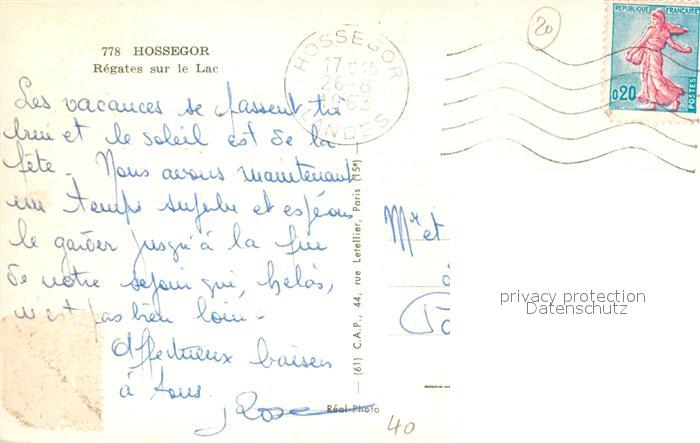 778 HOSSEGOR
Régates sur le Lac
HOSSEGOR
LANDES
20
REPUBLIQUE FRANÇAISE
0,20
POSTES
Les vacances se passent très
bien et le soleil est de la
fête. Nous avons maintenant
un temps superbe et espérons
le garder jusqu'à la fin
de notre séjour qui, hélas,
n'est pas bien loin.
Affectueux baisers
à tous.
Mr et
(61) C.A.P., 44, rue Letellier, Paris (15e)
Réal-Photo
40
privacy protection
Datenschutz